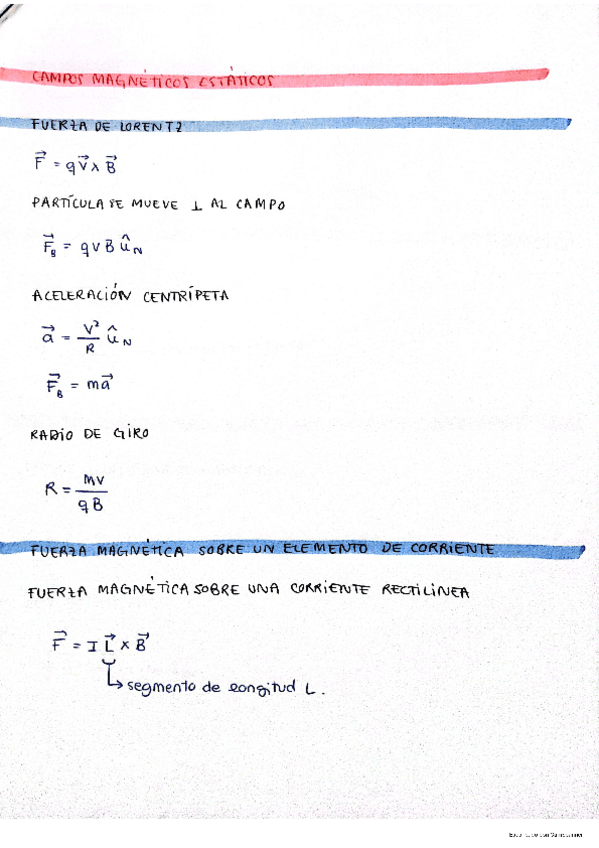 CAMPOS MAGNÉTICOS ESTÁTICOS
FUERZA DE LORENTZ
F⃗ = qV⃗ x B⃗
PARTÍCULA SE MUEVE ⊥ AL CAMPO
F⃗_B = qVB û_N
ACELERACIÓN CENTRÍPETA
a⃗ = V²/R û_N
F⃗_B = ma⃗
RADIO DE GIRO
R = mv/qB
FUERZA MAGNÉTICA SOBRE UN ELEMENTO DE CORRIENTE
FUERZA MAGNÉTICA SOBRE UNA CORRIENTE RECTILINEA
F⃗ = I L⃗ x B⃗
↳ segmento de longitud L.